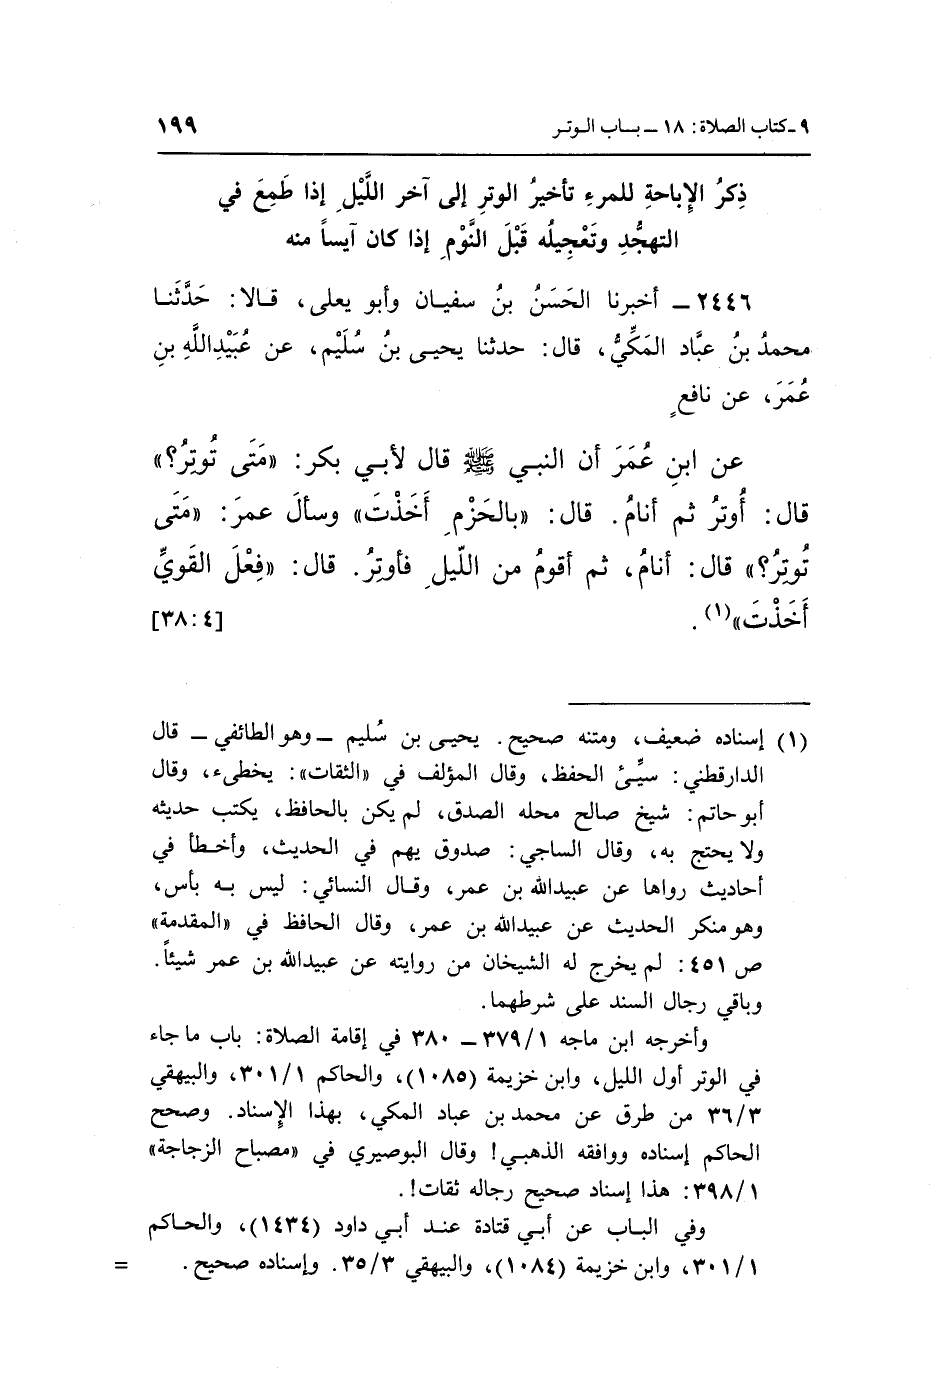 ٩ـ كتاب الصلاة: ١٨ ــ بـاب الـوتـر ١٩٩
ذِكرُ الإِباحةِ للمرءِ تأخيرُ الوترِ إلى آخر اللَّيْلِ إذا طَمِعَ في
التهجُّدِ وتَعْجِيلُه قَبْلَ النَّوْمِ إذا كان آيساً منه
٢٤٤٦ ــ أخبرنا الحَسَنُ بنُ سفيـان وأبو يعلى، قـالا: حَدَّثَنـا
محمدُ بنُ عبَّاد المَكِّيُّ، قال: حدثنا يحيـى بنُ سُلَيْم، عن عُبَيْدِاللَّهِ بنِ
عُمَرَ، عن نافعٍ
عن ابنِ عُمَرَ أن النبـي ﷺ قال لأبـي بكر: «مَتَى تُوتِرُ؟»
قال: أُوتِرُ ثم أنامُ. قال: «بالحَزْمِ أَخَذْتَ» وسألَ عمرَ: «مَتَى
تُوتِرُ؟» قال: أنامُ، ثم أقومُ من اللّيلِ فأوتِرُ. قال: «فِعْلَ القَويِّ
أَخَذْتَ»(١). [٣٨:٤]
(١) إسناده ضعيف، ومتنه صحيح. يحيـى بن سُليم ــ وهو الطائفي ــ قال
الدارقطني: سيِّئ الحفظ، وقال المؤلف في «الثقات»: يخطىء، وقال
أبو حاتم: شيخ صالح محله الصدق، لم يكن بالحافظ، يكتب حديثه
ولا يحتج به، وقال الساجي: صدوق يهم في الحديث، وأخـطأ في
أحاديث رواها عن عبيدالله بن عمر، وقـال النسائي: ليس بـه بأس،
وهو منكر الحديث عن عبيدالله بن عمر، وقال الحافظ في «المقدمة»
ص ٤٥١: لم يخرج له الشيخان من روايته عن عبيدالله بن عمر شيئاً.
وباقي رجال السند على شرطهما.
وأخرجه ابن ماجه ٣٧٩/١ ــ ٣٨٠ في إقامة الصلاة: باب ما جاء
في الوتر أول الليل، وابن خزيمة (١٠٨٥)، والحاكم ٣٠١/١، والبيهقي
٣٦/٣ من طرق عن محمد بن عباد المكي، بهذا الإِسناد. وصحح
الحاكم إسناده ووافقه الذهبـي! وقال البوصيري في «مصباح الزجاجة»
٣٩٨/١: هذا إسناد صحيح رجاله ثقات!.
وفي الباب عن أبـي قتادة عنـد أبـي داود (١٤٣٤)، والحـاكم
٣٠١/١، وابن خزيمة (١٠٨٤)، والبيهقي ٣٥/٣. وإسناده صحيح. =